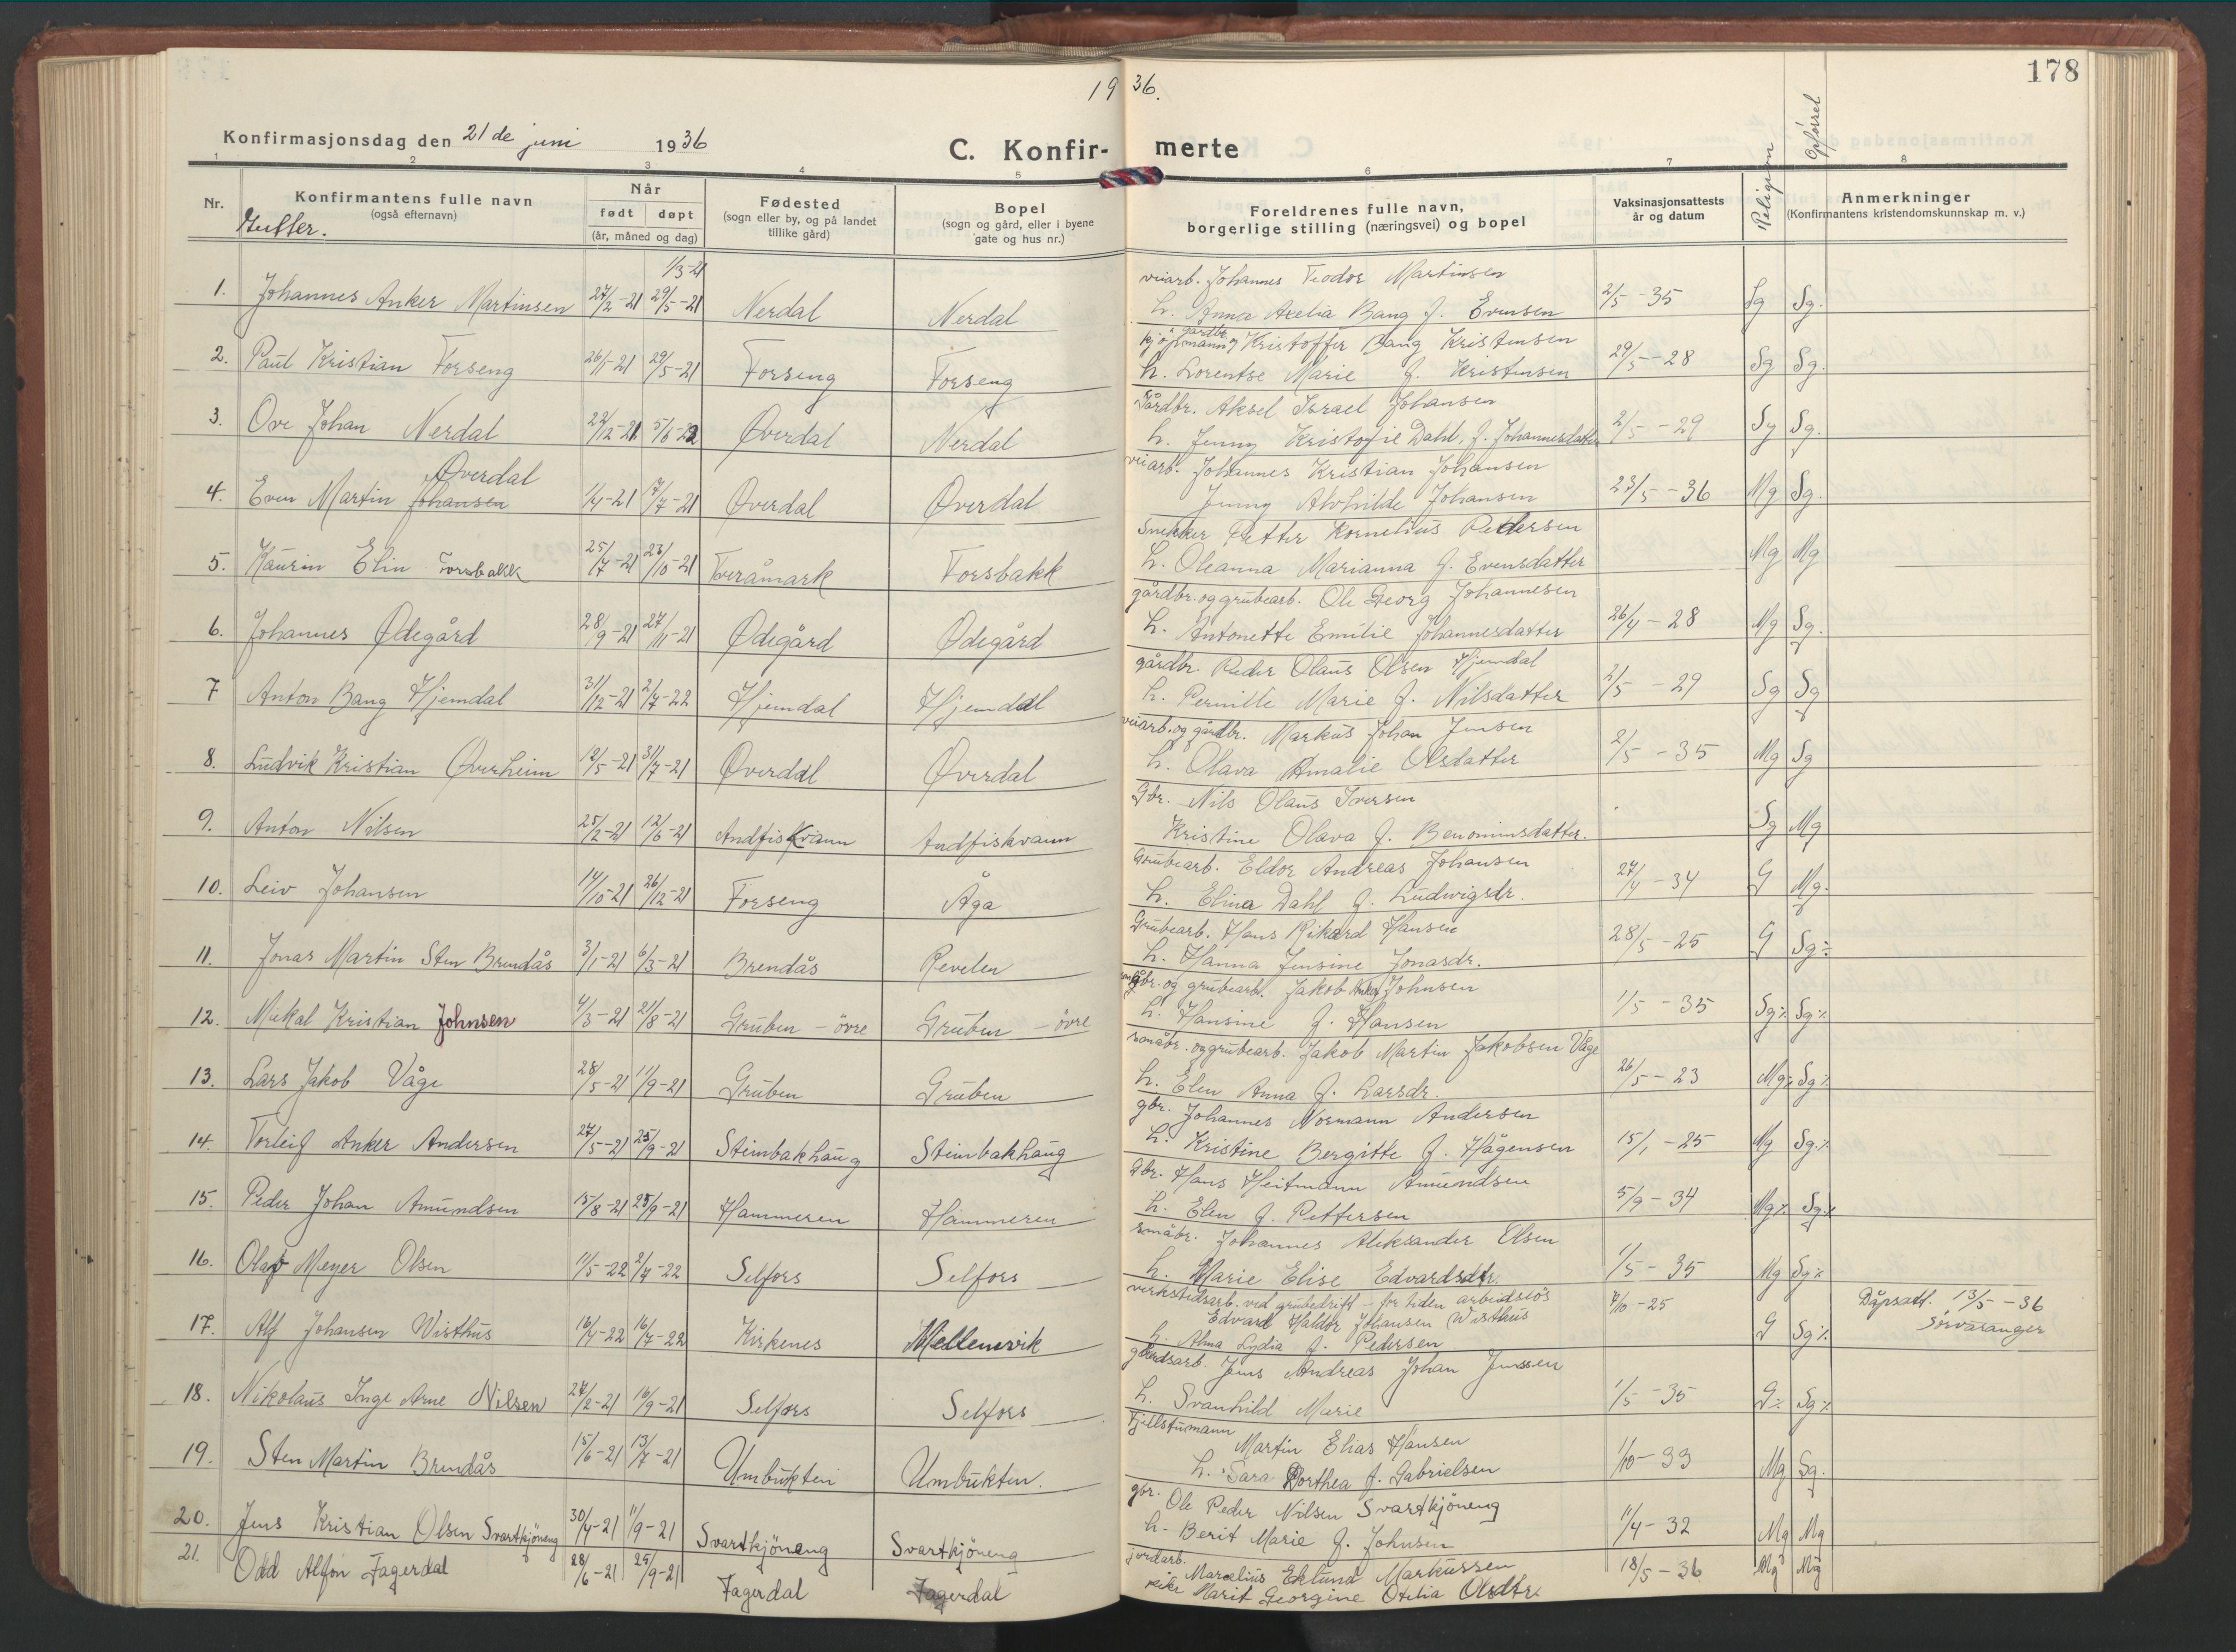 178
19 36.
Konfirmasjonsdag den 21 de juni 1936
C. Konfir- merte
1 2 3 4 5 6 7 8
Nr.
Konfirmantens fulle navn
(også efternavn)
Gutter.
Når
født døpt
(år, måned og dag)
Fødested
(sogn eller by, og på landet
tillike gård)
Bopel
(sogn og gård, eller i byene
gate og hus nr.)
Foreldrenes fulle navn,
borgerlige stilling (næringsvei) og bopel
Vaksinasjonsattests
år og datum
Religion
Opførsel
Anmerkninger
(Konfirmantens kristendomskunnskap m. v.)
1/3-21
veiarb. Johannes Teodor Martinsen
1. Johannes Anker Martinsen 27/2-21 29/5-21 Nerdal Nerdal h. Anna Axelia Bang f. Evensen 2/5-35 Sg Sg.
kjøpmann og gårdbr. Kristoffer Bang Kristensen
2. Paul Kristian Forseng 26/1-21 29/5-21 Forseng Forseng h. Lorentse Marie f. Kristensen 29/5-28 Sg Sg.
Gårdbr. Aksel Israel Johansen
3. Ove Johan Nerdal 22/12-21 5/6-22 Øverdal Nerdal h. Jenny Kristofie Dahl, f. Johannesdatter 2/5-29 Sg Sg.
Øverdal
veiarb. Johannes Kristian Johansen
4. Even Martin Johansen 1/4-21 17/7-21 Øverdal Øverdal Jenny Alvhilde Johansen 23/5-36 Mg Sg.
Snekker Petter Kornelius Pedersen
5. Kaurin Elin Forsbakk 25/7-21 23/10-21 Tveråmark Forsbakk h. Oleanna Marianna f. Evensdatter Mg Mg
gårdbr. og grubearb. Ole Georg Johannesen
6. Johannes Ødegård 28/9-21 27/11-21 Ødegård Ødegård h. Antonette Emilie Johannesdatter 26/4-28 Mg Sg.
gårdbr. Peder Olaus Olsen Hjemdal
7 Anton Bang Hjemdal 31/12-21 2/7-22 Hjemdal Hjemdal h. Pernille Marie f. Nilsdatter 2/5-29 Sg Sg
veiarb. og gårdbr. Markus Johan Jensen
8. Ludvik Kristian Øverheim 12/5-21 31/7-21 Øverdal Øverdal h. Olava Amalie Olsdatter 2/5-35 Mg Sg
Gbr. Nils Olaus Iversen
9. Anton Nilsen 25/2-21 12/6-21 Andfiskvann Andfiskvann Kristine Olava f. Benoninsdatter. Sg Mg
Grubearb. Eldor Andreas Johansen
10. Leiv Johansen 14/10-21 26/12-21 Forseng Åga h. Elina Dahl f. Ludwigsdr. 27/4-34 G Mg.
Grubearb. Hans Rikard Hansen
11. Jonas Martin Sten Brendås 3/1-21 6/3-21 Brendås Revelen h. Hanna Jensine Jonasdr. 28/5-25 G Sg÷
småbr. og grubearb. Jakob Anker Johnsen
12. Mikal Kristian Johnsen 4/3-21 21/8-21 Gruben - övre Gruben - övre h. Hansine f. Hansen 1/5-35 Sg% Sg%
småbr. og grubearb. Jakob Martin Jakobsen Våge
13. Lars Jakob Våge 28/5-21 11/9-21 Gruben Gruben h. Elen Anna f. Larsdr. 26/5-23 Mg% Sg%
gbr. Johannes Normann Andersen
14. Torleif Anker Andersen 27/5-21 25/9-21 Steinbakhaug Steinbakhaug h. Kristine Bergitte f. Hågensen 15/1-25 Mg Sg%
Gbr. Hans Heitmann Amundsen
15. Peder Johan Amundsen 15/8-21 25/9-21 Hammeren Hammeren h. Elen f. Pettersen 5/9-34 Mg% Sg%
småbr. Johannes Aleksander Olsen
16. Olaf Meyer Olsen 11/5-22 2/7-22 Selfors Selfors h. Marie Elise Edvardsdtr. 1/5-35 Mg Sg%
verkstedsarb. ved grubedrift - for tiden arbeidslös
Edvard Haldor Johansen Wisthus
17. Alf Johansen Wisthus 16/4-22 16/7-22 Kirkenes Mellemvik h. Alma Lydia f. Pedersen 7/10-25 G Sg% Dåpsatt. 13/5-36
Sörvaranger
Jens Andreas Johan Jenssen
18. Nikolaus Inge Arne Nilsen 27/2-21 16/9-21 Selfors Selfors h. Svanhild Marie 1/5-35 G% Sg%
Fjellstumann
Martin Elias Hansen
19. Sten Martin Brendås 15/6-21 13/7-21 Umbukten Umbukten. h. Sara Dorthea f. Gabrielsen 1/10-33 Mg Sg.
gbr. Ole Peder Nilsen Svartkjöneng
20. Jens Kristian Olsen Svartkjöneng 30/4-21 11/9-21 Svartkjöneng Svartkjöneng h. Berit Marie f. Johnsen 1/4-32 Mg Mg
jordarb. Marcelius Eklund Markussen
21. Odd Alfon Fagerdal 28/6-21 25/9-21 Fagerdal Fagerdal Marit Georgine Otelia Olsdtr. 18/5-36 Mg Mg